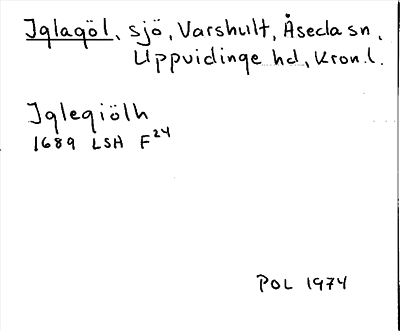 Iglagöl, sjö, Varshult, Åseda sn,
Uppvidinge hd, Kron.l.
Iglegiölh
1689 LSA F24
POL 1974